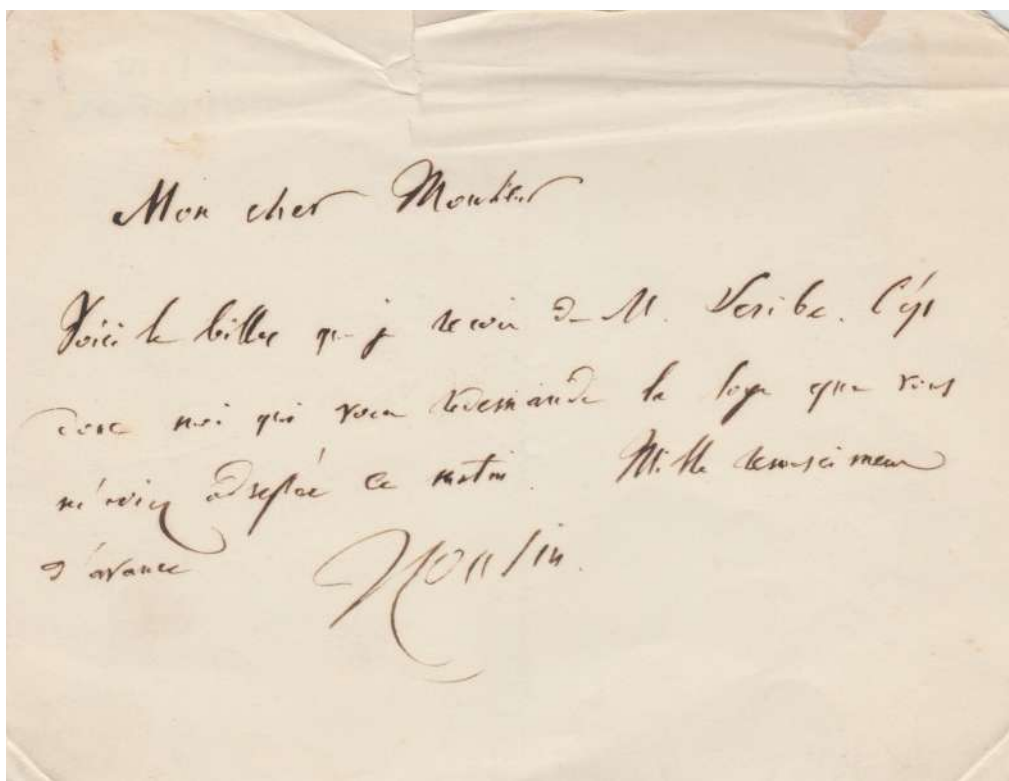 Mon cher
Voici le billet que je reçois de M. Scribe. C'est
donc moi qui vous redemande la loge que vous
m'aviez adressée ce matin. Mille remerciemens
d'avance